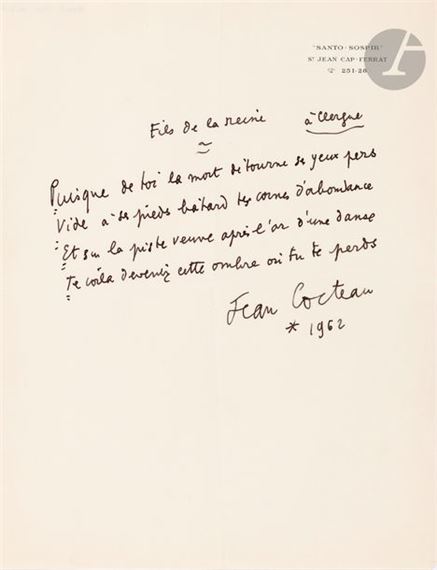 "SANTO-SOSPIR"
St JEAN CAP-FERRAT
251-28
Fils de la reine
à Clergue
Puisque de toi la mort détourne ses yeux pers
Vide à ses pieds bâtard tes cornes d'abondance
Et sur la piste veuve après l'or d'une danse
Te voilà devenir cette ombre où tu te perds
Jean Cocteau
* 1962